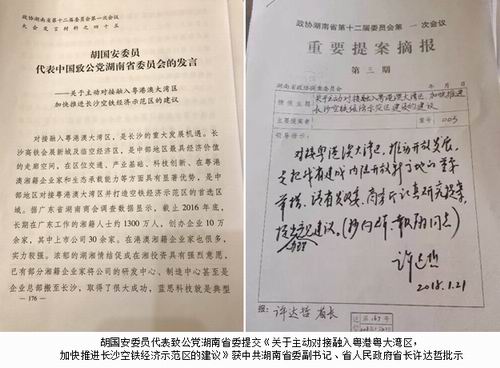 政协湖南省第十二届委员会第一次会议
大会发言材料之四十三
胡国安委员
代表中国致公党湖南省委员会的发言
——关于主动对接融入粤港澳大湾区
加快推进长沙空铁经济示范区的建议
对接融入粤港澳大湾区，是长沙的重大发展机遇。长
沙高铁会展新城及临空经济区，是中部地区最具经济价值
的走廊空间，在区位交通、产业基础、科技创新、在粤港
澳湘籍企业家和生态承载能力等方面具有显著优势，是中
部地区对接粤港澳大湾区并打造空铁经济示范区的首选区
域。据广东省湖南商会调查数据显示，截止2016年底，
长期在广东工作的湘籍人士约1300万人，创办企业10万
余家，其中上市公司30余家。在港澳湘籍企业家也很多，
实力较强。浓郁的湖湘情结促成在湘投资具有强烈意愿，
已有部分湘籍企业家将公司的研发中心、制造中心甚至是
企业总部搬至长沙，取得了很大成功，蓝思科技就是典型
- 176 -
政协湖南省第十二届委员会第一次会议
重要提案摘报
第三期
关于主动对接融入粤港澳大湾区 加快推进
长沙空铁经济示范区建设的建议
领导指示：
对接粤港澳大湾区，推动开放发展，
是把我省建成内陆开放新高地的重要
举措，请省发改委、商务厅认真研究提案，
提出意见建议。
许达哲
2018.1.21
报：许达哲 省长
胡国安委员代表致公党湖南省委提交《关于主动对接融入粤港粤大湾区，
加快推进长沙空铁经济示范区的建议》获中共湖南省委副书记、省人民政府省长许达哲批示